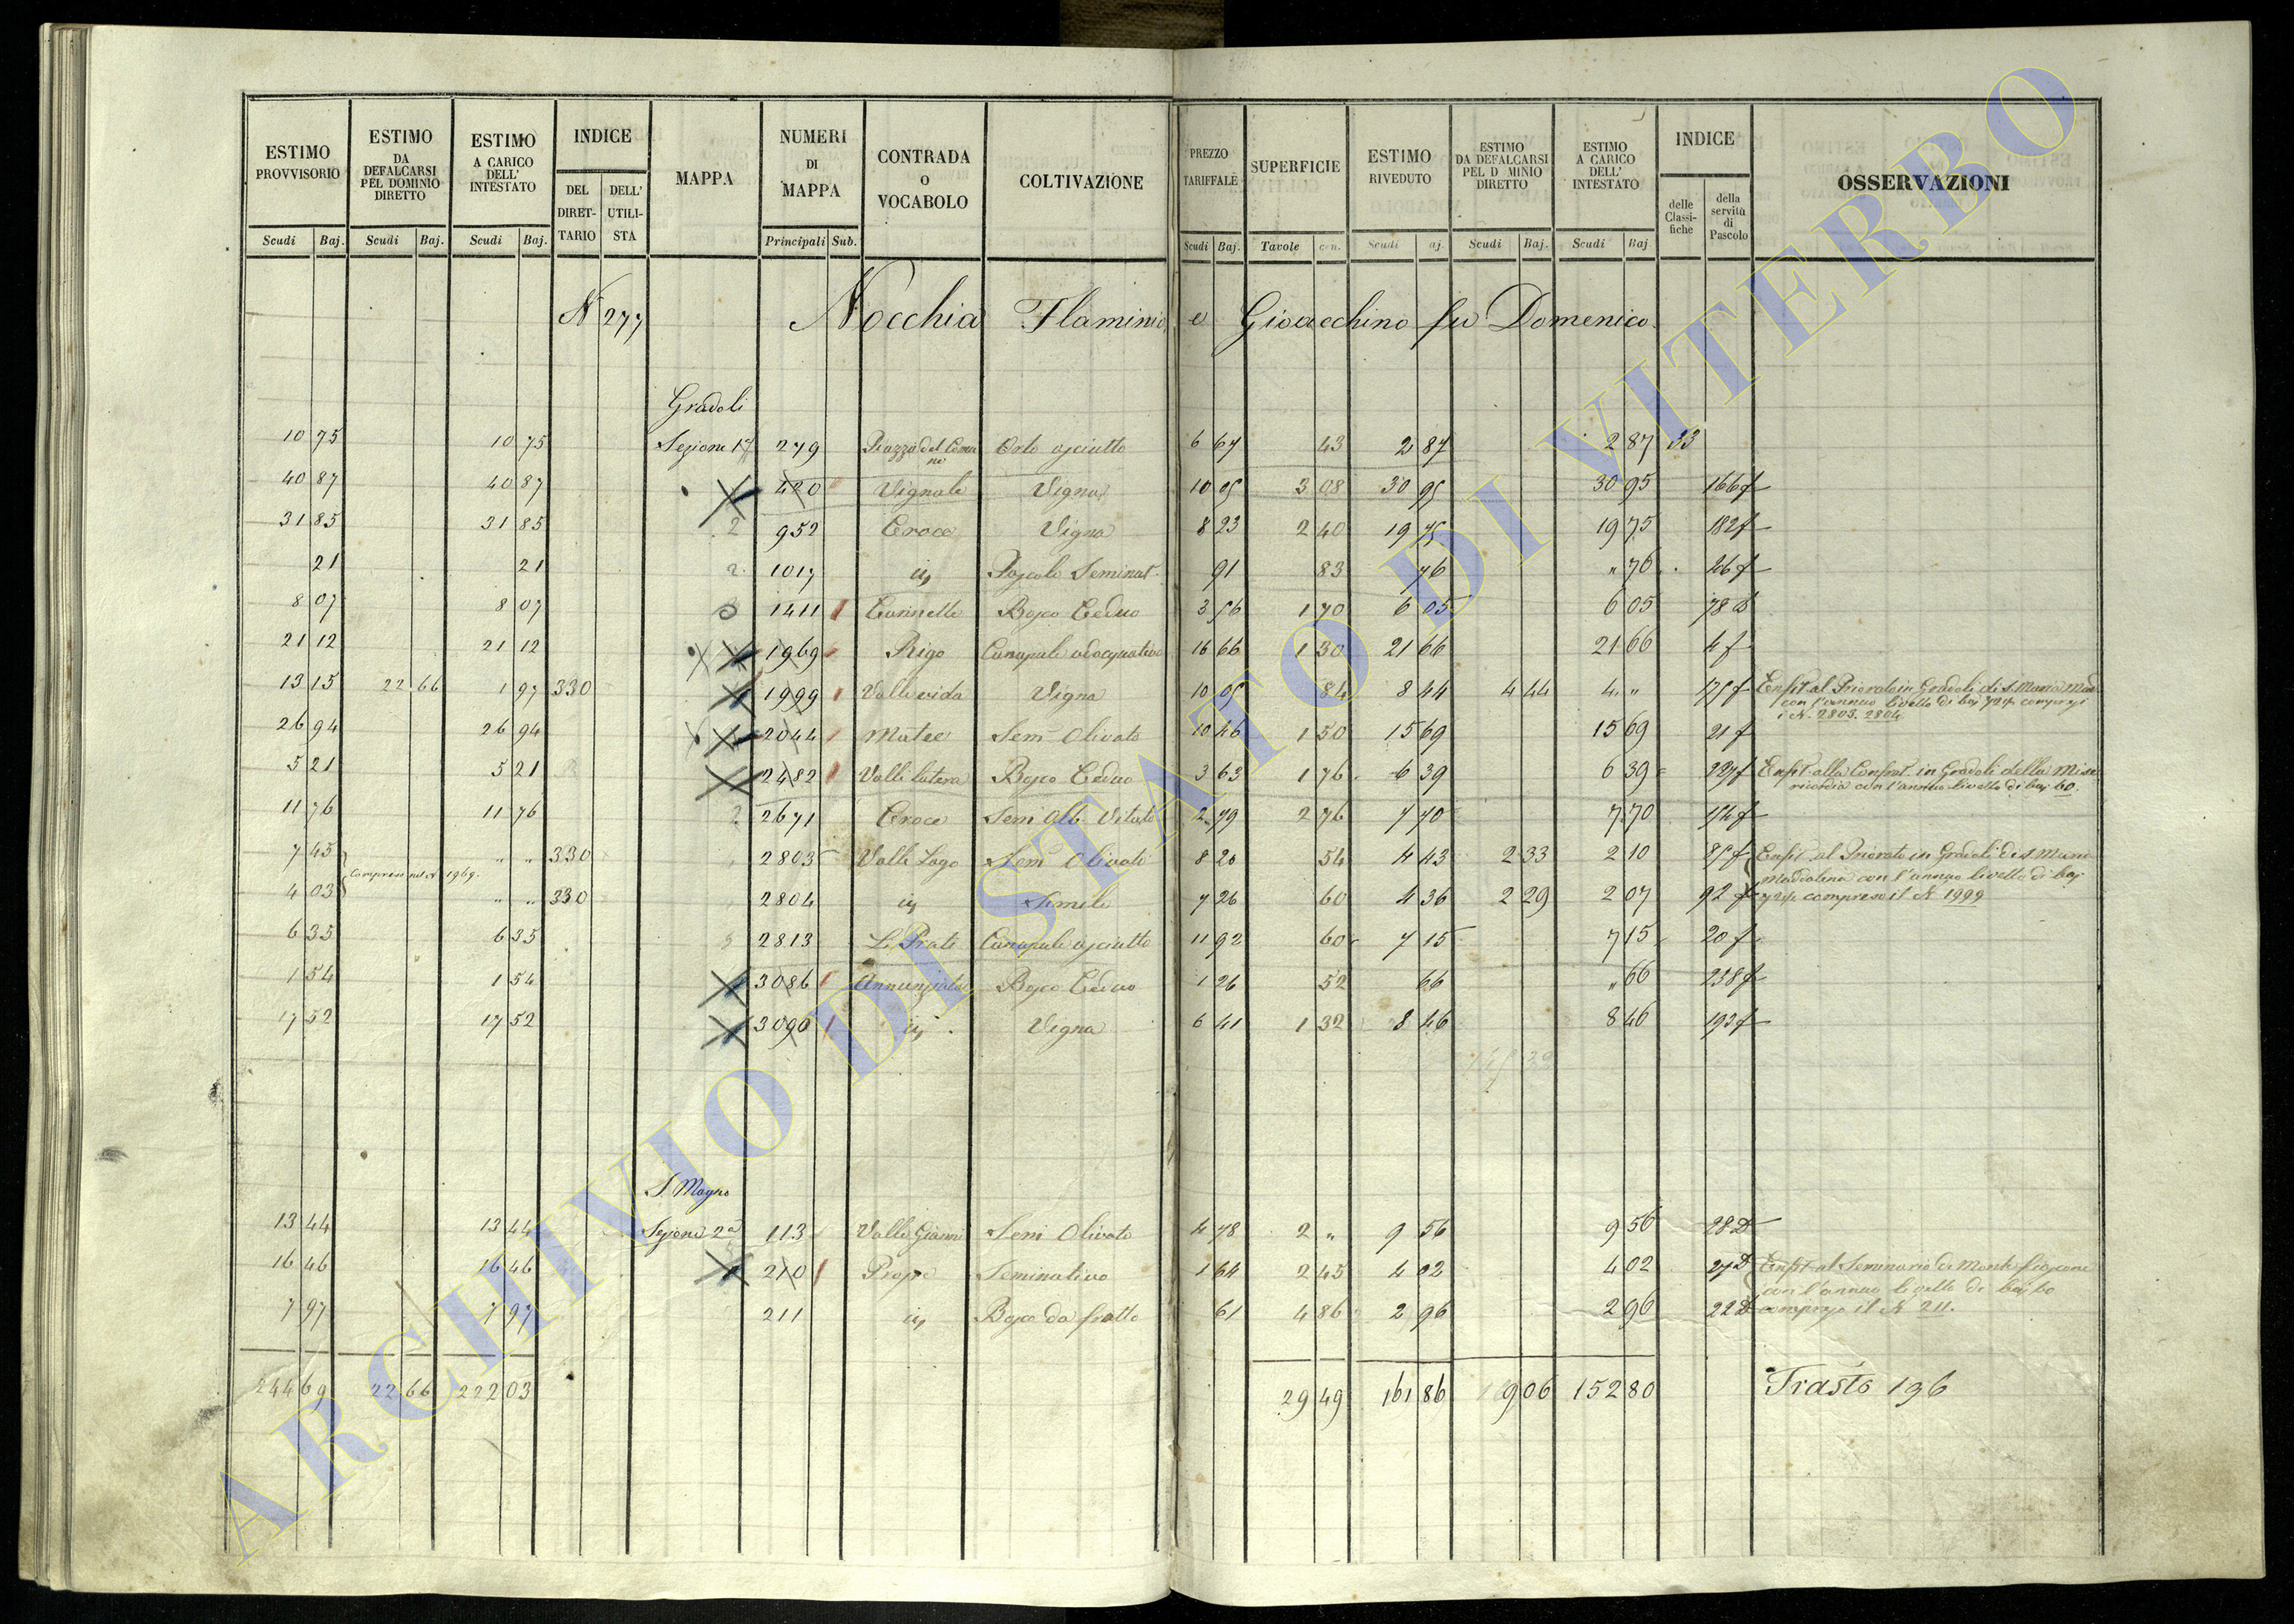 ESTIMO PROVVISORIO Scudi Baj.
ESTIMO DA DEFALCARSI PEL DOMINIO DIRETTO Scudi Baj.
ESTIMO A CARICO DELL' INTESTATO Scudi Baj.
INDICE DEL DIRETTARIO DELL' UTILISTA
MAPPA
NUMERI DI MAPPA Principali Sub.
CONTRADA O VOCABOLO
COLTIVAZIONE
PREZZO TARIFFALE Scudi Baj.
SUPERFICIE Tavole cen.
ESTIMO RIVEDUTO Scudi aj.
ESTIMO DA DEFALCARSI PEL D MINIO DIRETTO Scudi Baj.
ESTIMO A CARICO DELL' INTESTATO Scudi Baj
INDICE delle Classifiche della servitù di Pascolo
OSSERVAZIONI
N 277 Nocchia Flaminio e Gioacchino fu Domenico
Gradoli
10 75 10 75 Sezione 1ª 279 Piazza del Comune Orto asciutto 6 67 43 2 87 2 87 33
40 87 40 87 420 Vignale Vigna 10 05 3 08 30 95 30 95 166 f
31 85 31 85 2 952 Croce Vigna 8 23 2 40 19 75 19 75 182 f
21 21 2 1017 id Pascolo Seminat. 91 83 76 " 76 26 f
8 07 8 07 3 1411 Bosco Ceduo 3 56 1 70 6 05 6 05 78
21 12 21 12 1969 Rigo Canapule adacquativo 16 66 1 30 21 66 21 66 4 f
13 15 22 66 1 97 330 1999 Vallovida Vigna 10 05 84 8 44 4 44 4 " 175 f Enfit. al Priorato in Gradoli di S. Maria Mad.
con l'annuo livello di baj 72½ compresi
i N. 2803. 2804
26 94 26 94 2044 Matee Sem Olivato 10 46 1 50 15 69 15 69 21 f
5 21 5 21 2482 Valle latera Bosco Ceduo 3 63 1 76 6 39 6 39 227 f Enfit. alla Confrat. in Gradoli della Mise
ricordia con l'annuo livello di baj 60.
11 76 11 76 2 2671 Croce Sem Alb Vitato 2 79 2 76 7 70 7 70 f
7 45 " " 330 2803 Valle Lago Sem Olivato 8 20 54 4 43 2 33 2 10 85 f Enfit. al Priorato in Gradoli di S. Maria
Compreso nel N 1969.
Maddalena con l'annuo livello di baj
4 03 " " 330 2804 id Simile 7 26 60 4 36 2 29 2 07 92 f 72½ compreso il N 1999
6 35 6 35 2813 Li Prati Canapule asciutto 11 92 60 7 15 7 15 20 f
1 54 1 54 3086 Annunziata Bosco Ceduo 1 26 52 66 " 66 238 f
17 52 17 52 3090 id Vigna 6 41 1 32 8 46 8 46 193 f
S. Magno
13 44 13 44 Sezione 2ª 113 Valle Gianni Sem Olivato 4 78 2 " 9 56 9 56 28 D
16 46 16 46 210 Seminativo 1 64 2 45 4 02 4 02 27 D Enfit. al Seminario di Montefiascone
con l'annuo livello di baj 60
7 97 7 97 211 id Bosco da frutto 61 4 86 2 96 2 96 22 D compreso il N 211.
244 69 22 66 222 03 29 49 161 86 9 06 152 80 Trasto 196
ARCHIVIO DI STATO DI VITERBO